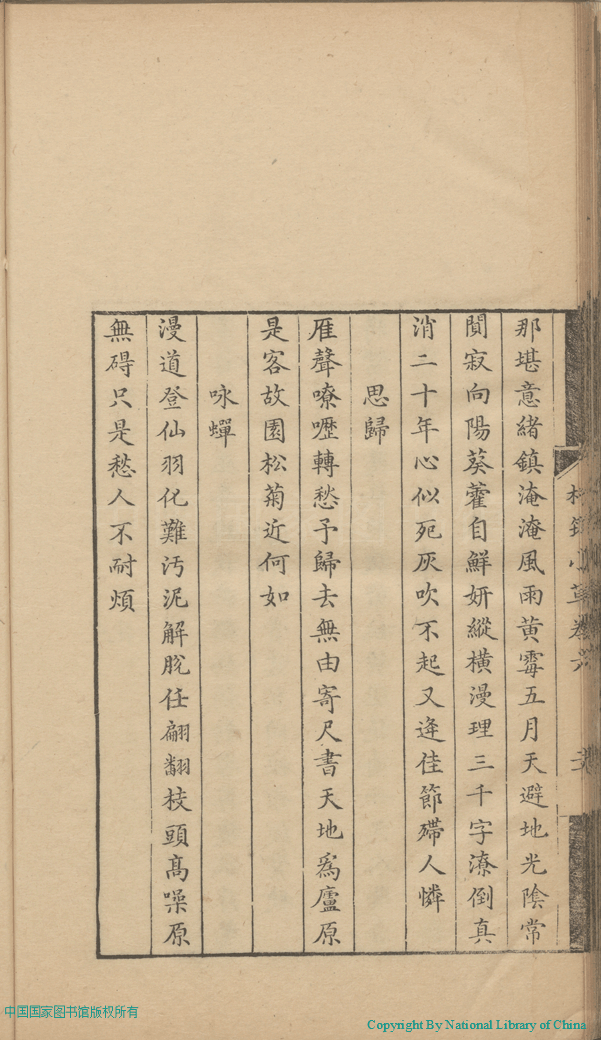 那堪意緒鎮淹淹風雨黄霉五月天避地光陰常
閴寂向陽葵藿自鮮妍縱横漫理三千字潦倒真
消二十年心似死灰吹不起又逢佳節殢人憐
思歸
雁聲嘹嚦轉愁予歸去無由寄尺書天地爲廬原
是客故園松菊近何如
咏蟬
漫道登仙羽化難污泥解脫任翩翻枝頭高噪原
無碍只是愁人不耐煩
小草卷六
中国国家图书馆版权所有
Copyright By National Library of China